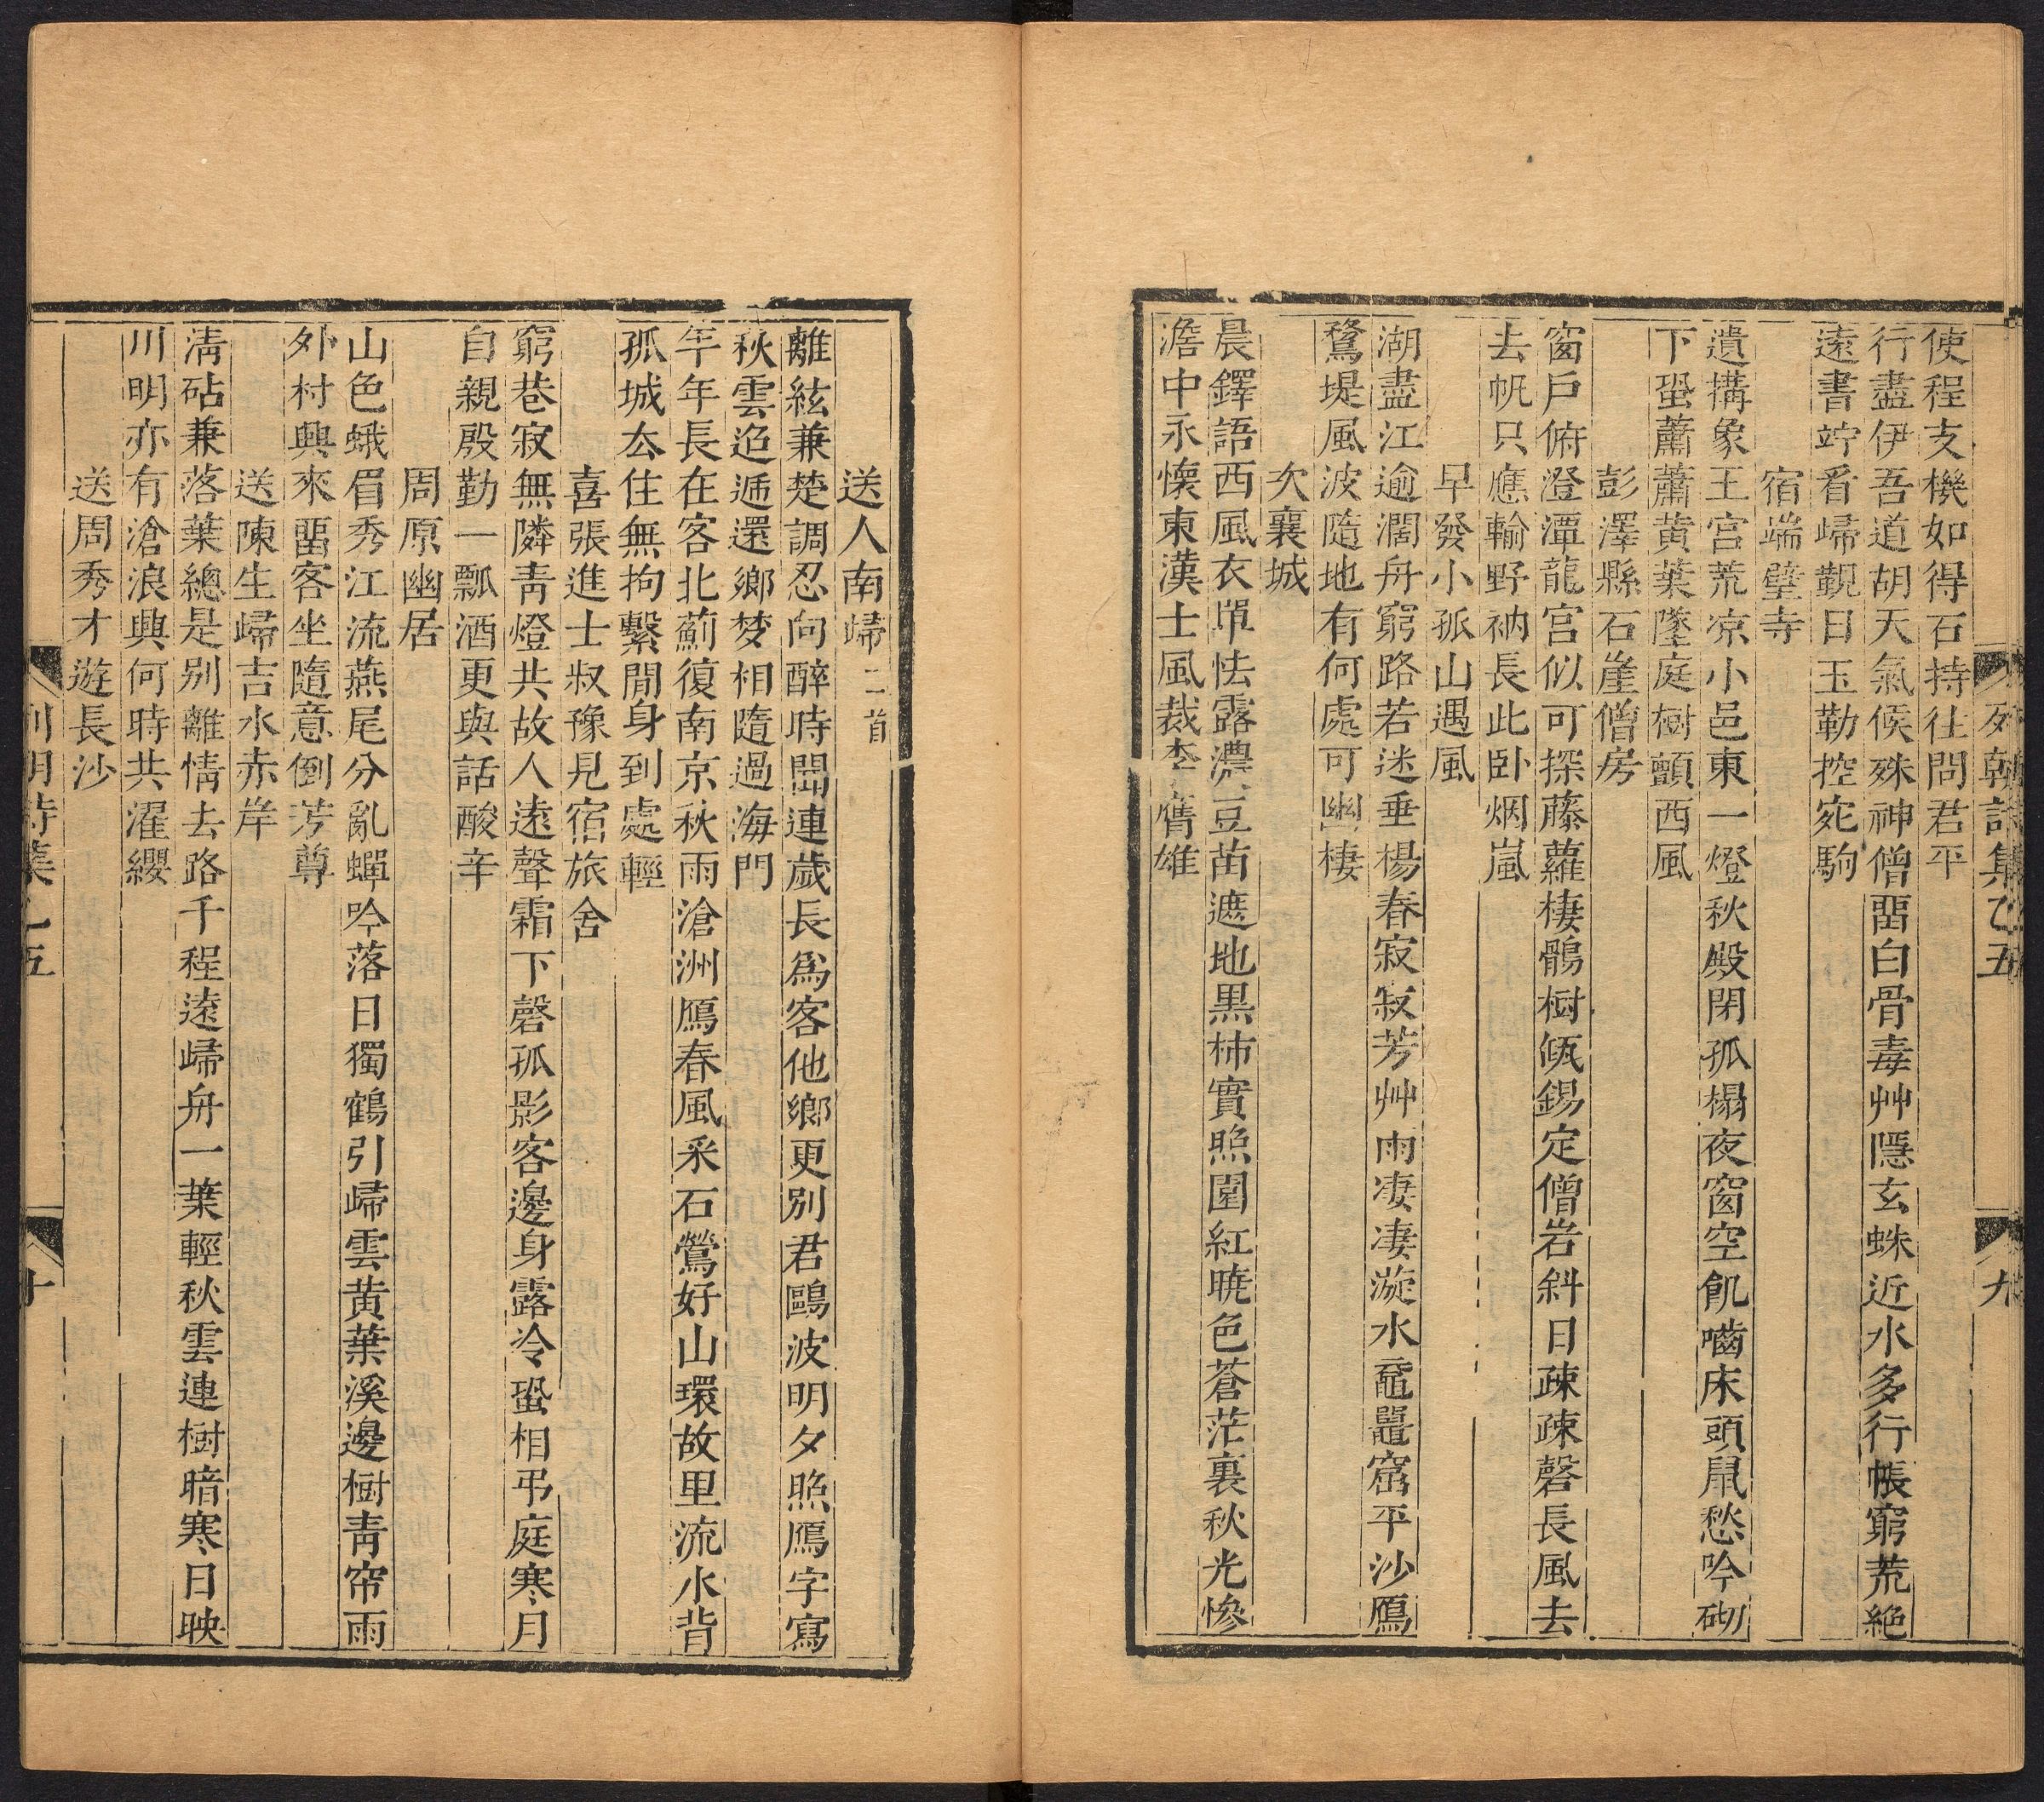 列朝詩集乙五
九
使程支機如得石持往問君平
行盡伊吾道胡天氣候殊神僧畱白骨毒艸隱玄蛛近水多行帳窮荒絕
遠書竚看歸覲日玉勒控宛駒
宿端壁寺
遺搆象王宮荒凉小邑東一燈秋殿閉孤榻夜窗空飢嚙床頭鼠愁吟砌
下蛩蕭蕭黃葉墜庭樹顫西風
彭澤縣石崖僧房
窗戶俯澄潭龍宮似可探藤蘿棲鶻樹瓶錫定僧岩斜日疎疎磬長風去
去帆只應輸野衲長此卧烟嵐
早發小孤山遇風
湖盡江逾濶舟窮路若迷垂楊春寂寂芳艸雨凄凄漩水黿鼉窟平沙鴈
鶩堤風波隨地有何處可幽棲
次襄城
晨鐸語西風衣單怯露濃豆苗遮地黑柿實照園紅曉色蒼茫裏秋光慘
澹中永懷東漢士風裁李膺雄
送人南歸二首
離絃兼楚調忍向醉時聞連歲長爲客他鄉更別君鷗波明夕照鴈字寫
秋雲迢遞還鄉梦相隨過海門
年年長在客北薊復南京秋雨滄洲鴈春風采石鶯好山環故里流水背
孤城厺住無拘繫閒身到處輕
喜張進士叔豫見宿旅舍
窮巷寂無隣靑燈共故人遠聲霜下磬孤影客邊身露冷蛩相弔庭寒月
自親殷勤一瓢酒更與話酸辛
周原幽居
山色蛾眉秀江流燕尾分亂蟬吟落日獨鶴引歸雲黃葉溪邊樹靑帘雨
外村興來畱客坐隨意倒芳尊
送陳生歸吉水赤岸
淸砧兼落葉總是別離情去路千程遠歸舟一葉輕秋雲連樹暗寒日映
川明亦有滄浪興何時共濯纓
送周秀才遊長沙
列朝詩集乙五
十